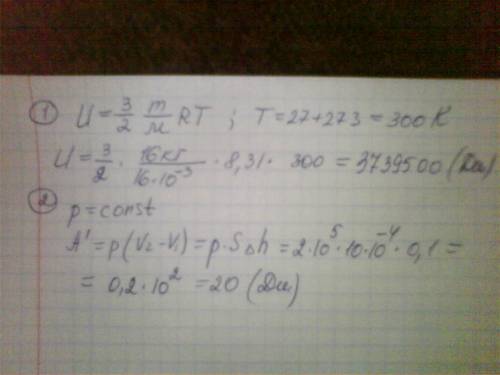 ① U = 3/2 m/M RT ; T = 27 + 273 = 300 K
U = 3/2 · 16кг/16·10⁻³ · 8,31 · 300 = 3739500 (Дж)
② p = const
A' = p(V₂ - V₁) = p · S Δh = 2·10⁵ · 10·10⁻⁴ · 0,1 =
= 0,2 · 10² = 20 (Дж)